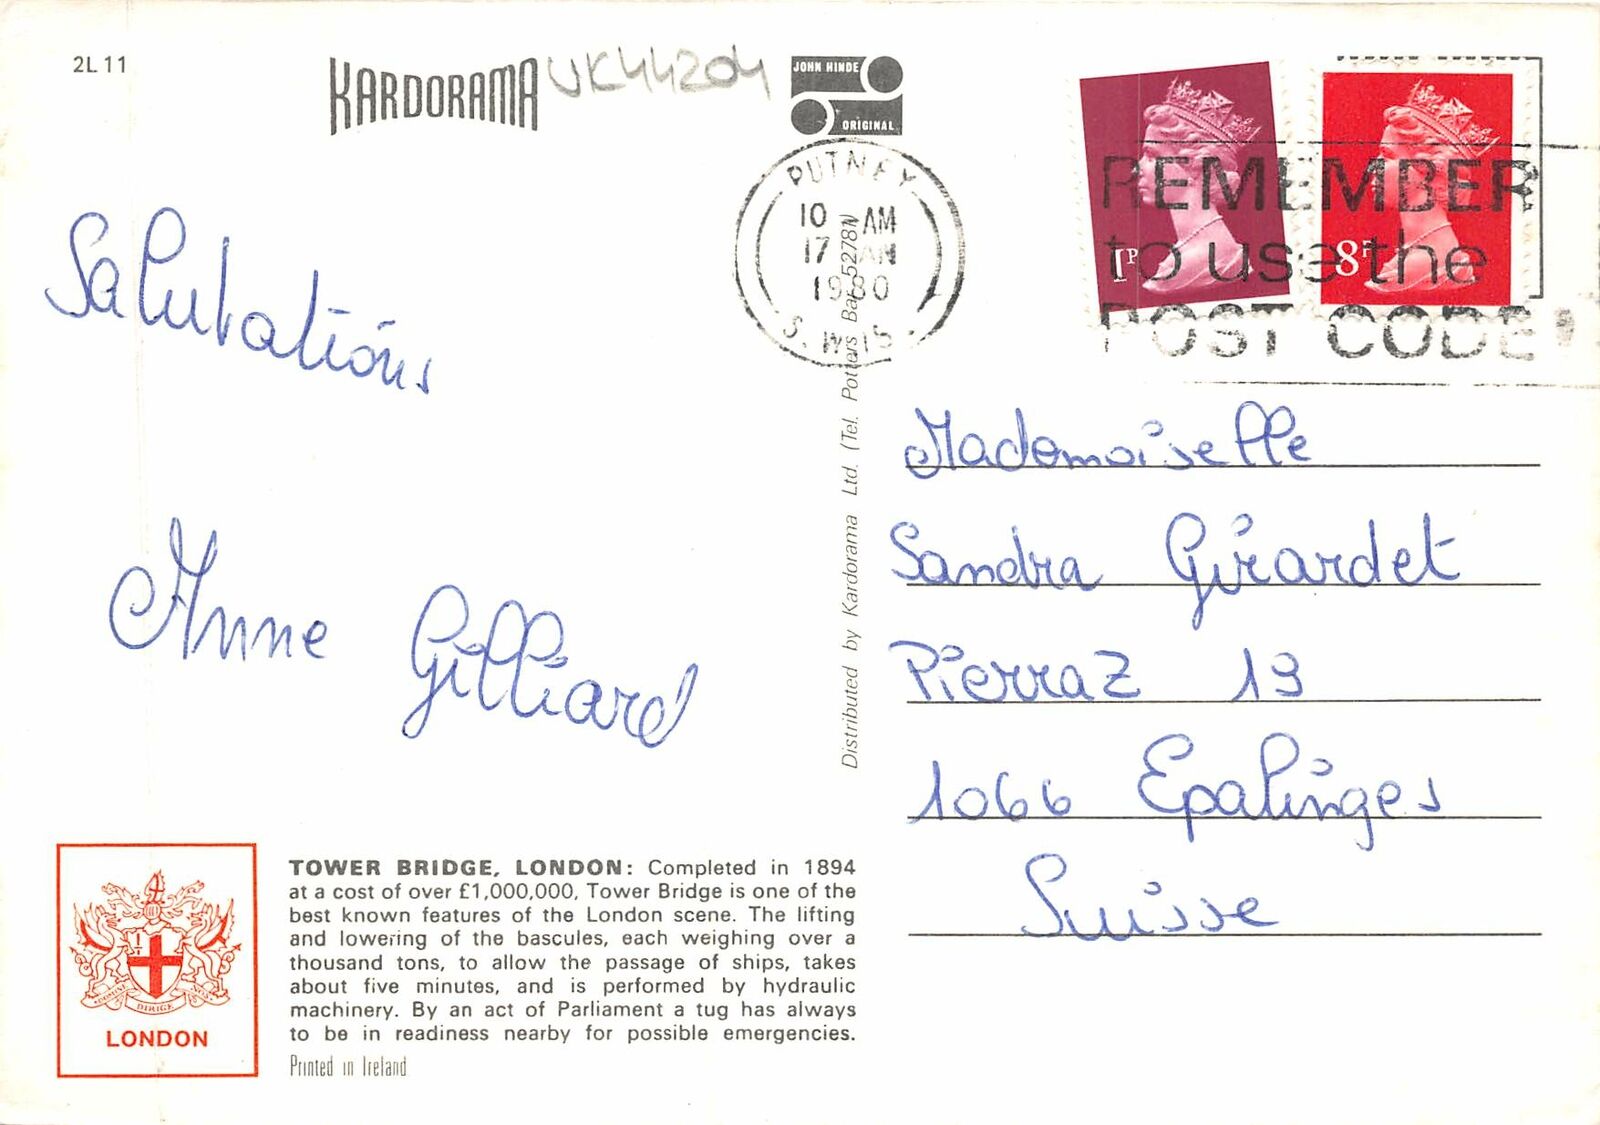 2L 11
KARDORAMA
UK44204
JOHN HINDE
ORIGINAL
PUTNEY
10 AM
17 AN
1980
S.W.15
1P
8P
REMEMBER
to use the
POST CODE
Salutations
Anne Gilliard
Distributed by Kardorama Ltd. (Tel. Potters Bar 52781)
Mademoiselle
Sandra Girardet
Pierraz 19
1066 Epalinges
Suisse
DOMINE DIRIGE NOS
LONDON
TOWER BRIDGE, LONDON: Completed in 1894
at a cost of over £1,000,000, Tower Bridge is one of the
best known features of the London scene. The lifting
and lowering of the bascules, each weighing over a
thousand tons, to allow the passage of ships, takes
about five minutes, and is performed by hydraulic
machinery. By an act of Parliament a tug has always
to be in readiness nearby for possible emergencies.
Printed in Ireland